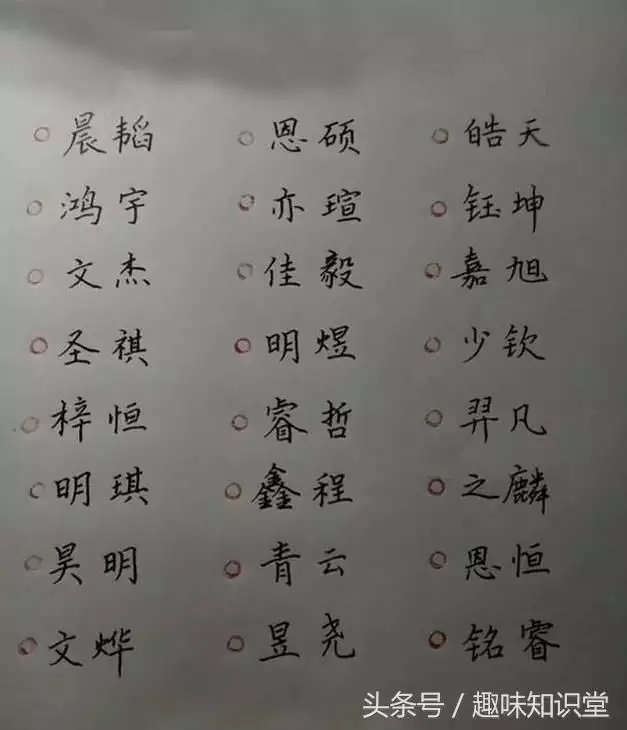 晨韬 恩硕 皓天
鸿宇 亦瑄 钰坤
文杰 佳毅 嘉旭
圣祺 明煜 少钦
梓恒 睿哲 羿凡
明琪 鑫程 之麟
昊明 青云 恩恒
文烨 昱尧 铭睿
头条号 / 趣味知识堂